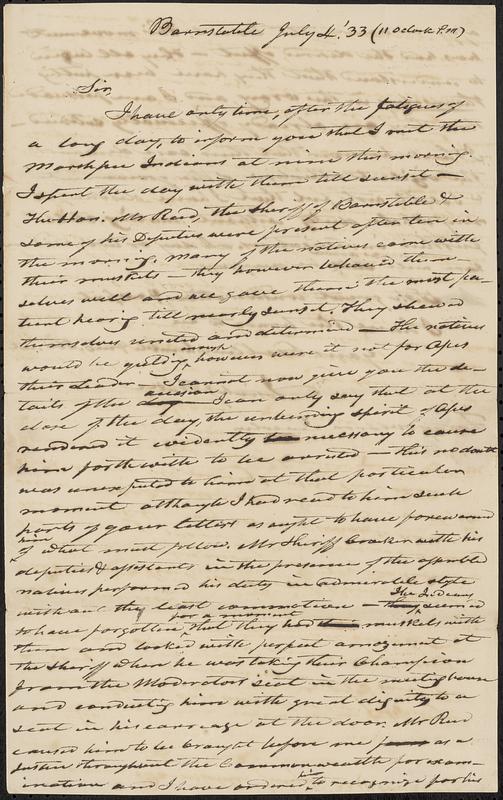 Barnstable July 4.' 33 (11 oclock P.M)
Sir,
I have only time, after the fatigues of
a long day, to inform you that I met the
Marshpee Indians at nine this morning.
I spent the day with them till sunset —
The Hon. Mr Reed, the Sheriff of Barnstable &
some of his Deputies were present after ten in
the morning. Many of the natives came with
their muskets — they however behaved them-
selves well and we gave them the most pa-
tient hearing till nearly sunset. They shewed
themselves united and determined — The natives
would be yielding enough, however were it not for Apes
their Leader — I cannot now give you the de-
tails of the occasion — I can only say that at the
close of the day, the unbending spirit of Apes
rendered it evidently necessary to cause
him forthwith to be arrested — this no doubt
was unexpected to him at that particular
moment although I had read to him such
parts of your letters as ought to have forewarned
him of what must follow. Mr Sheriff Crocker with his
deputies & assistants in the presence of the assembled
natives performed his duty in admirable style
without the least commotion — The Indians seemed
to have forgotten for a moment that they had muskets with
them and looked with perfect amazement at
the Sheriff when he was taking their Champion
from the Moderators seat in the meeting house
and conducting him with great dignity to a
seat in his carreage at the door. Mr Reed
caused him to be brought before me as a
justice throughout the Commonwealth for exam-
ination and I have ordered him to recognize for his